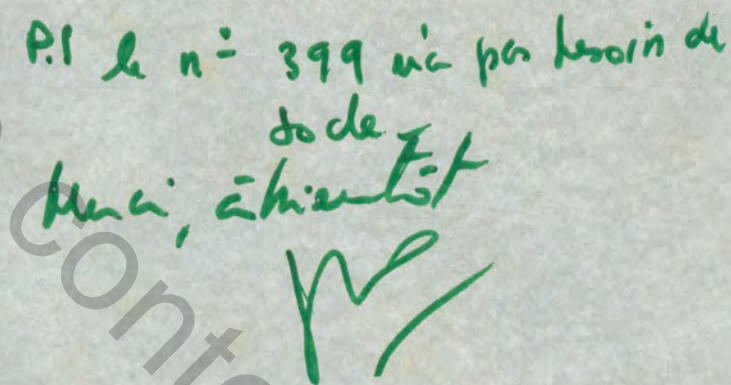 P.S le n° 399 n'a pas besoin de
socle.
Merci, à bientôt
Conte